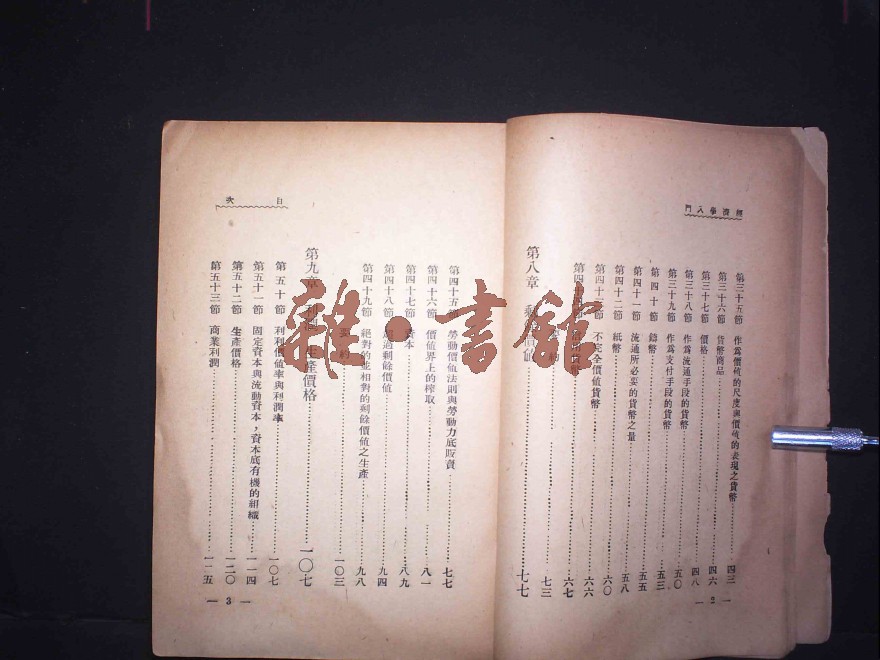 經濟學入門
第三十五節 作爲價値的尺度與價値的表現之貨幣 四三
第三十六節 貨幣商品 四六
第三十七節 價格 四八
第三十八節 作爲流通手段的貨幣 五〇
第三十九節 作爲支付手段的貨幣 五三
第四十節 鑄幣 五五
第四十一節 流通所必要的貨幣之量 五八
第四十二節 紙幣 六〇
第四十三節 不完全價値貨幣 六六
第四十四節 六七
約 七三
第八章 七七
— 2 —
目次
第四十五節 勞動價値法則與勞動力底販賣 七七
第四十六節 價値界上的榨取 八一
第四十七節 資本 八九
第四十八節 剩餘價値 九四
第四十九節 絕對的並相對的剩餘價値之生產 九八
約 一〇三
第九章 利潤 生產價格 一〇七
第五十節 利潤率 一〇七
第五十一節 固定資本與流動資本，資本底有機的組織 一一四
第五十二節 生產價格 一二〇
第五十三節 商業利潤 一二五
— 3 —
雜·書館